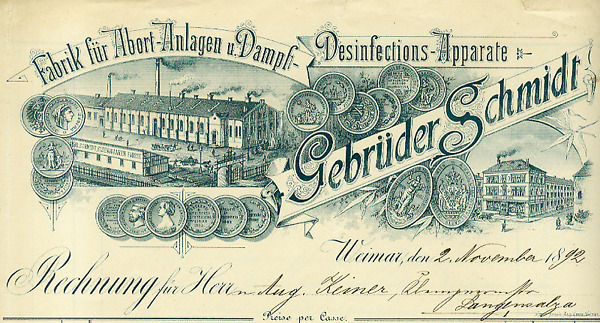 Fabrik für Abort-Anlagen u. Dampf-Desinfections-Apparate
Gebrüder Schmidt
Weimar, den 2. November 1892
Rechnung für Herrn Aug. Keiner,
Langensalza
Preise per Casse.